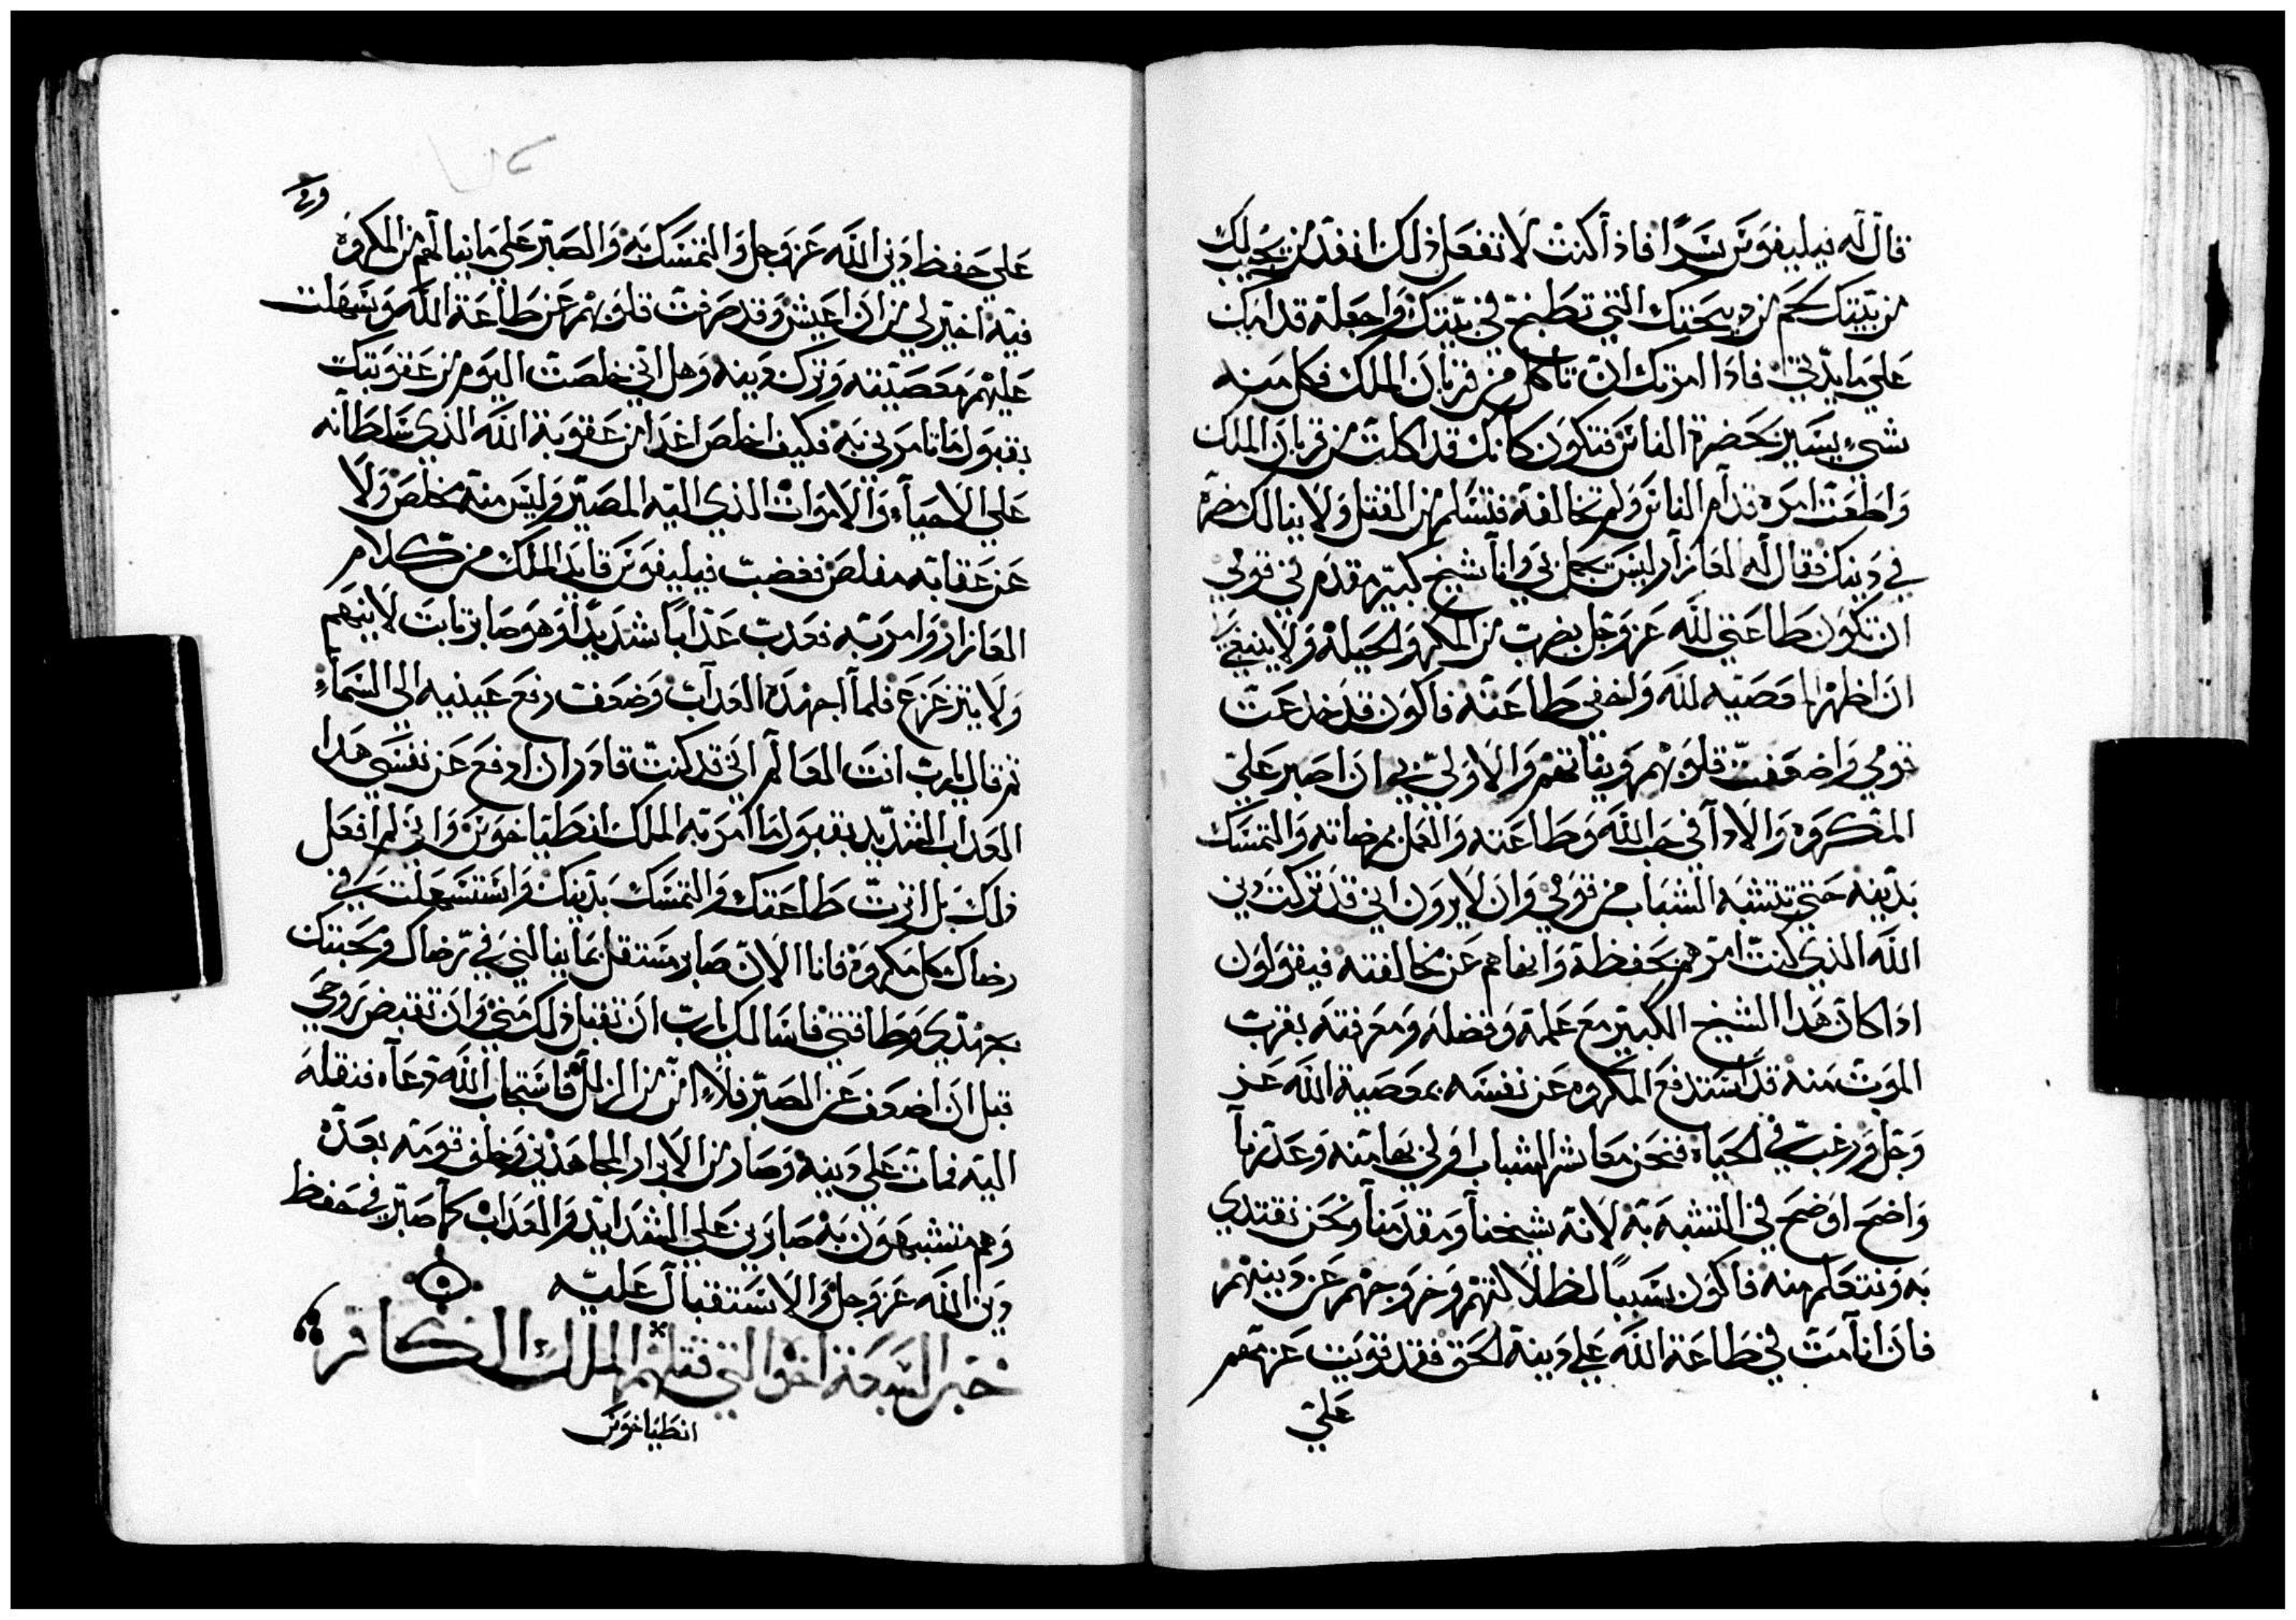 قال له فيليفوس سرًا فاذا كنت لا تفعل ذلك انفد من يجيب لك
من بيتك لحم من دبيحتك التي تطبخ في بيتك واجعله قدامك
على مايدتي فاذا امرتك ان تاكل من قربان الملك فكل منه
شيءٍ يسير بحضرة الناس فتكون كانك قد اكلت من قربان الملك
واطعت امره قدام الناس ولم تخالفه فتسلم من القتل ولا ينالك مضرة
في دينك فقال له العازار ليس يجمل بي وانا شيخ كبير مقدم في قومي
ان تكون طاعتي لله عز وجل بضرب من المكر والحيلة ولا ينبغي
ان اظهر معصيه لله واخفي طاعته فاكون قد خدعت
قومي واضعفت قلوبهم ونياتهم والاولى بي ان اصبر على
المكروه والادا في حب الله وطاعته والعمل بمرضاته والتمسك
بدينه حتى يتشبه الشباب من قومي وان لا يرون اني قد تركت دين
الله الذي كنت امرهم بحفظه وانهاهم عن مخالفته فيقولون
اذا كان هذا الشيخ الكبير مع علمه وفضله ومعرفته بقرب
الموت منه قد استدفع المكروه عن نفسه بمعصية الله عز
وجل ورغب في الحياه فنحن معاشر الشباب اولى بها منه وعذرنا
واضح اوضح في التشبه به لانه شيخنا ومقدمنا ونحن نقتدي
به ونتعلم منه فاكون سببًا لظلالتهم وخروجهم عن دينهم
فان انا مت في طاعة الله على دينه الحق فقد قويت عزمهم
على
على حفظ دين الله عز وجل والتمسك به والصبر على ما ينالهم من المكروه
فيه اخير لي من ان اعيش وقد صرفت قلوبهم عن طاعة الله وسهلت
عليهم معصيته وترك دينه وهل اني خلصت اليوم من عقوبتك
بقبول ما تامرني به فكيف اخلص غدا من عقوبة الله الذي سلطانه
على الاحياء والاموات الذي اليه المصير وليس منه مخلص ولا
عن عقابه مفلص فغضب فيليفوس قايد الملك من كلام
العازار وامر به فعدب عذابًا شديدًا وهو صابر ثابت لا ينهم
ولا يتزعزع فلما اجهده العداب وضعف رفع عينيه الى السماء
ثم قال يا رب انت العالم اني قد كنت قادر ان ادفع عن نفسي هدا
العداب الشديد بقبول ما امر به الملك انطياخوس واني لم افعل
ذلك بل اثرت طاعتك والتمسك بدينك واستسهلت في
رضاك كل مكروه فانا الان صابر مستقل بما ينالني في رضاك ومحبتك
بجهدي وطاقتي فاسالك يا رب ان تقبل ذلك مني وان تقبض روحي
قبل ان اضعف عن الصبر فلا امن من الزلل فاستجاب الله دعاه فنقله
اليه فمات على دينه وصار من الابرار المجاهدين وخلف قومه بعده
وهم متشبهون به صابرين على الشدايد والعداب كما صبر في حفظ
دين الله عز وجل والاستقبال عليه
خبر السبعة اخوا التي قتلهم الملك الكافر
انطياخوس